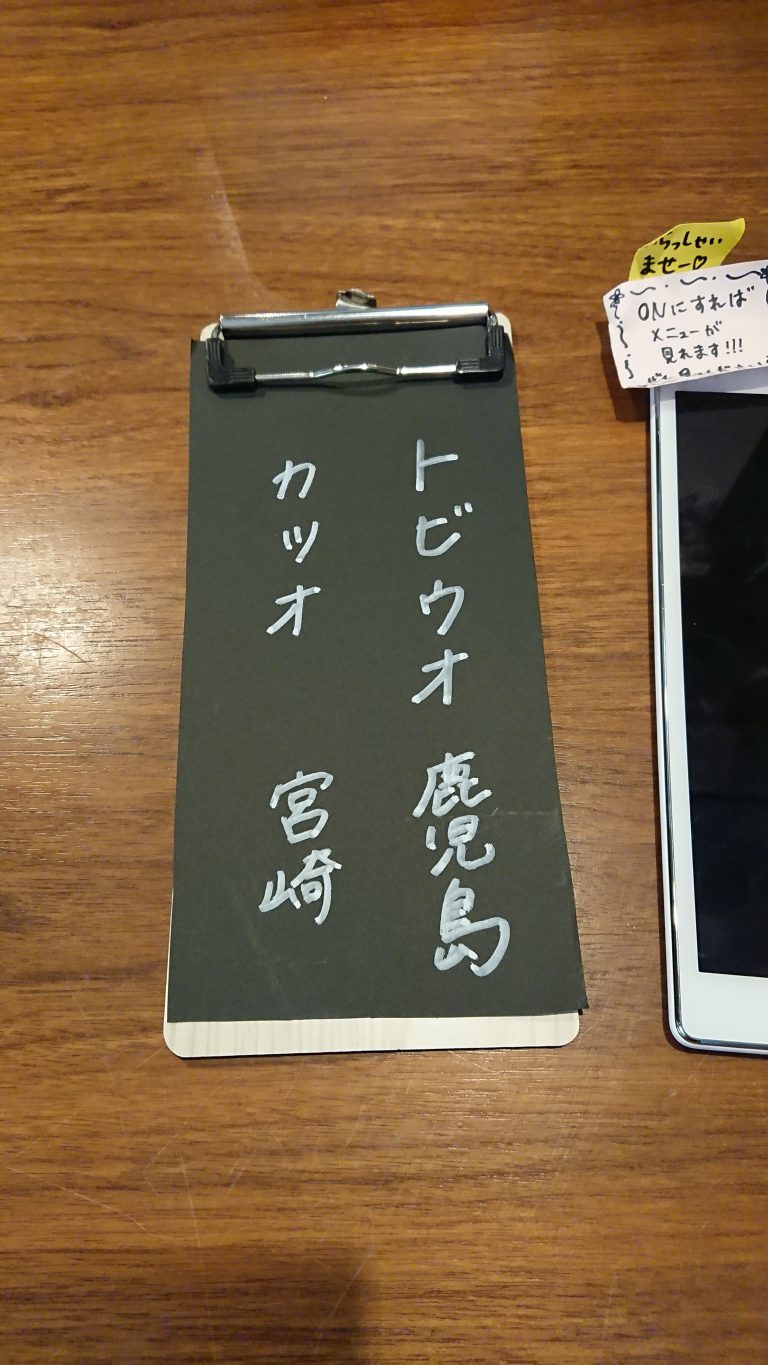 トビウオ 鹿児島
カツオ 宮崎
らっしゃい
ませー♡
ONにすれば
メニューが
見れます!!!